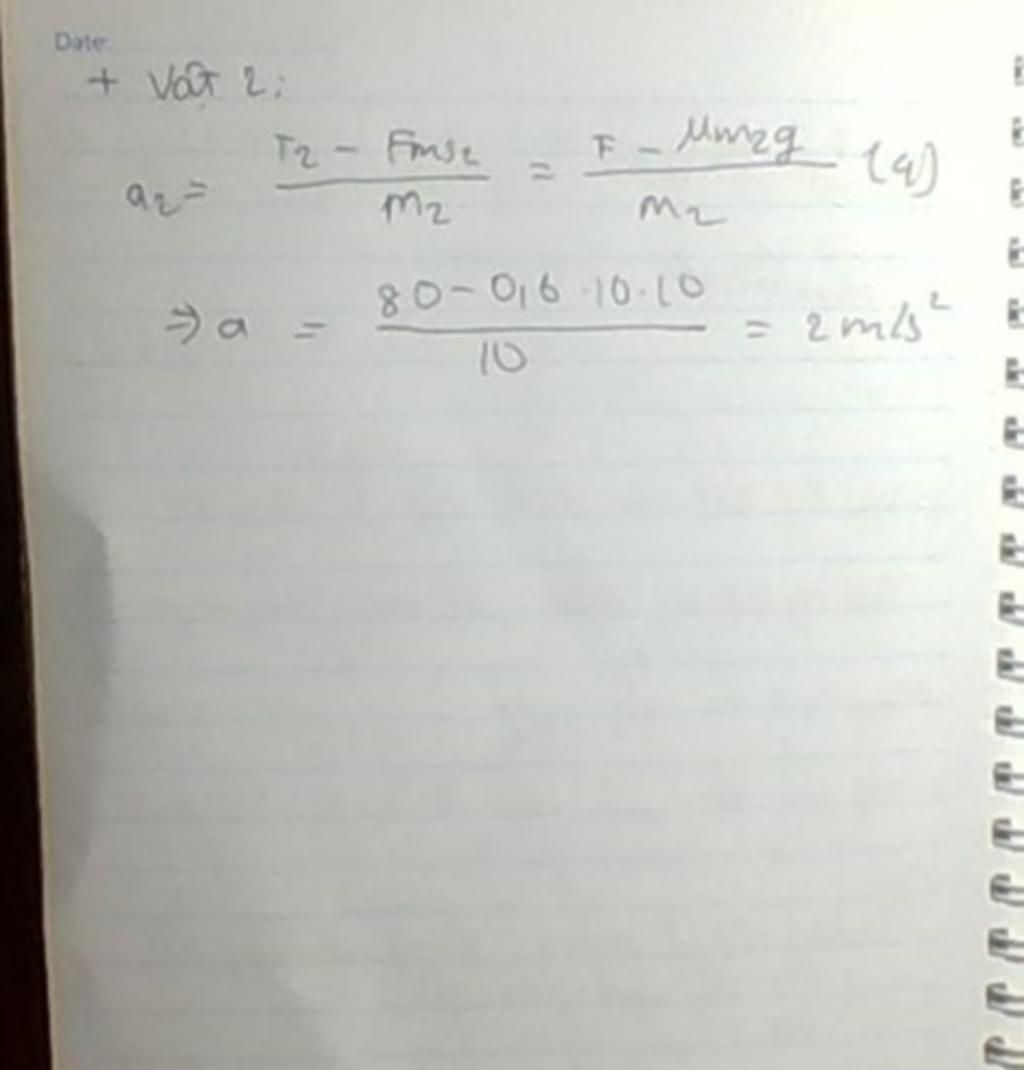 Date:
+ Vật 2:
a₂ = (T₂ - Fms₂)/m₂ = (F - μm₂g)/m₂ (4)
⇒ a = (80 - 0,6 · 10 · 10)/10 = 2 m/s²